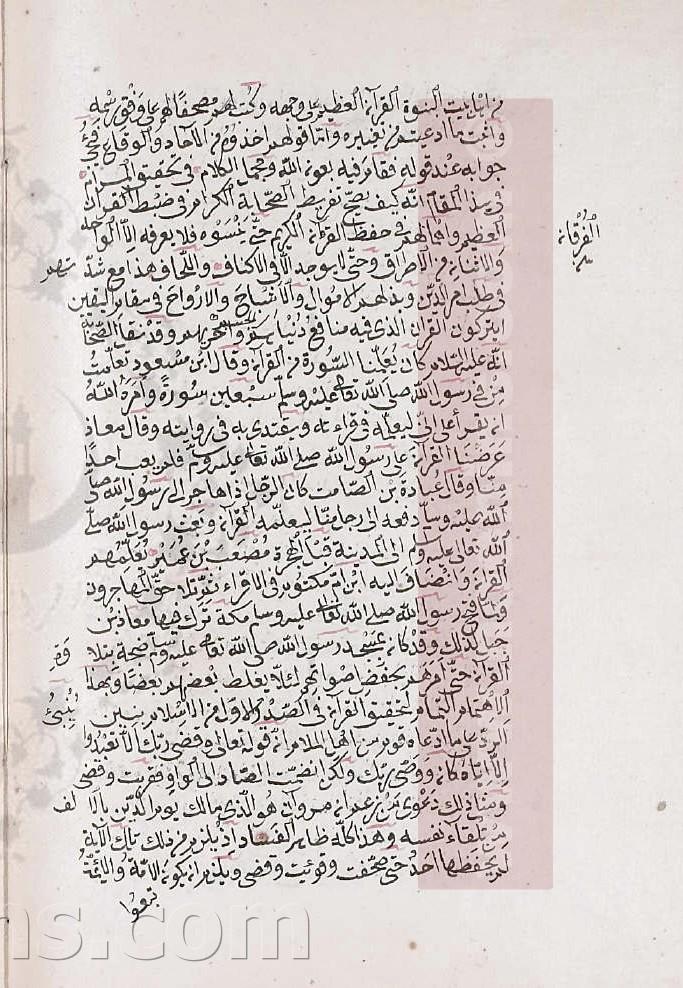 من اهل بيت النبوة القرآن العظيم على وجهه وكتب لهم مصحفا لهم على وفق رسمه
واثبت ما ادعيتم من تغييره واما قولهم اخذوه من الآحاد والوقاع
جوابه عند قوله فقام فيه بعون الله ومجمل الكلام في تحقيق المرام
في هذا المقام انه كيف يصح تفريط الصحابة الكرام في ضبط القرآن
العظيم واهمالهم في حفظ القرآن الكريم حتى ينسوه فلا يعرفه الا الواحد
والاثنان من الاطراف وحتى لا يوجد الا في الاكتاف واللخاف هذا مع شدتهم
الفرقان
في طلب امر الدين وبذلهم الاموال والاشباح والارواح في مقام اليقين
ايتركون القرآن الذي فيه منافع دنياهم وقد نقل الصحابة
انه عليه السلام كان يعلمنا السورة من القرآن وقال ابن مسعود تعلمت
من في رسول الله صلى الله تعالى عليه وسلم سبعين سورة وامره الله
ان يقرأ على ابي ليعلمه في قراءته ويقتدي به في روايته وقال معاذ
عرضنا القرآن على رسول الله صلى الله تعالى عليه وسلم فلم يعب احدا
منا وقال عبادة بن الصامت كان الرجل اذا هاجر الى رسول الله صلى
الله عليه وسلم دفعه الى رجل منا ليعلمه القرآن وبعث رسول الله صلى
الله تعالى عليه وسلم الى المدينة قبل الهجرة مصعب بن عمير يعلمهم
القرآن وانضاف اليه ابن ام مكتوم في الاقراء ثم تلاحق المهاجرون
ولما فتح رسول الله صلى الله تعالى عليه وسلم مكة ترك فيها معاذ بن
جبل لذلك وقد كان يسمع بمسجد رسول الله صلى الله تعالى عليه وسلم ضجة بتلاوة
القرآن حتى امرهم بخفض اصواتهم لئلا يغلط بعضهم بعضا وبهذا
الاهتمام التام لتحقيق القرآن في الصدر الاول من الاسلام يتبين ينبئ
الرد على ما ادعاه قوم من اهل الملام ان قوله تعالى وقضى ربك الا تعبدوا
الا اياه كان ووصى ربك ولكن انضمت الصاد الى الواو فقرئت وقضى
ومثل ذلك دعوى من زعم ان مروان هو الذي مالك يوم الدين بالالف
من تلقاء نفسه وهذا كله ظاهر الفساد اذ يلزم من ذلك تلك الآية
لم يحفظها احد حتى صحفت وقرئت وقضى ويلزم ان يكون الامة والائمة
تبعوا